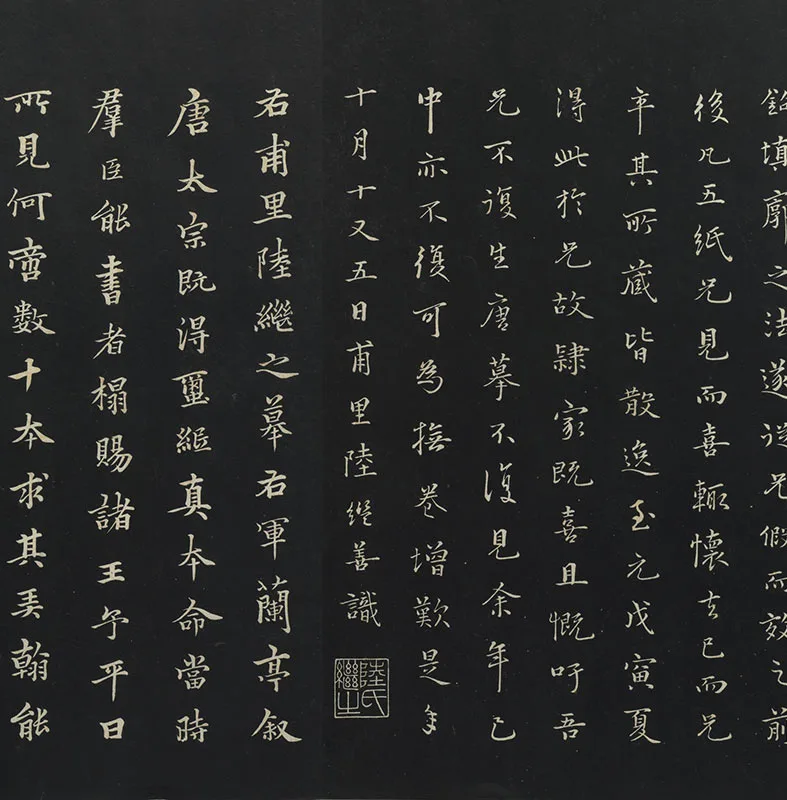 鉤填廓之法遂從兄假而效之前
後凡五紙兄見而喜輒懷去已而兄
卒其所藏皆散逸至元戊寅夏
得此於兄故隸家既喜且慨吁吾
兄不復生唐摹不復見余年已
中亦不復可為撫卷增歎是年
十月十又五日甫里陸繼善識
陸氏繼之
右甫里陸繼之摹右軍蘭亭叙
唐太宗既得璽紙真本命當時
羣臣能書者榻賜諸王予平日
所見何啻數十本求其弄翰能